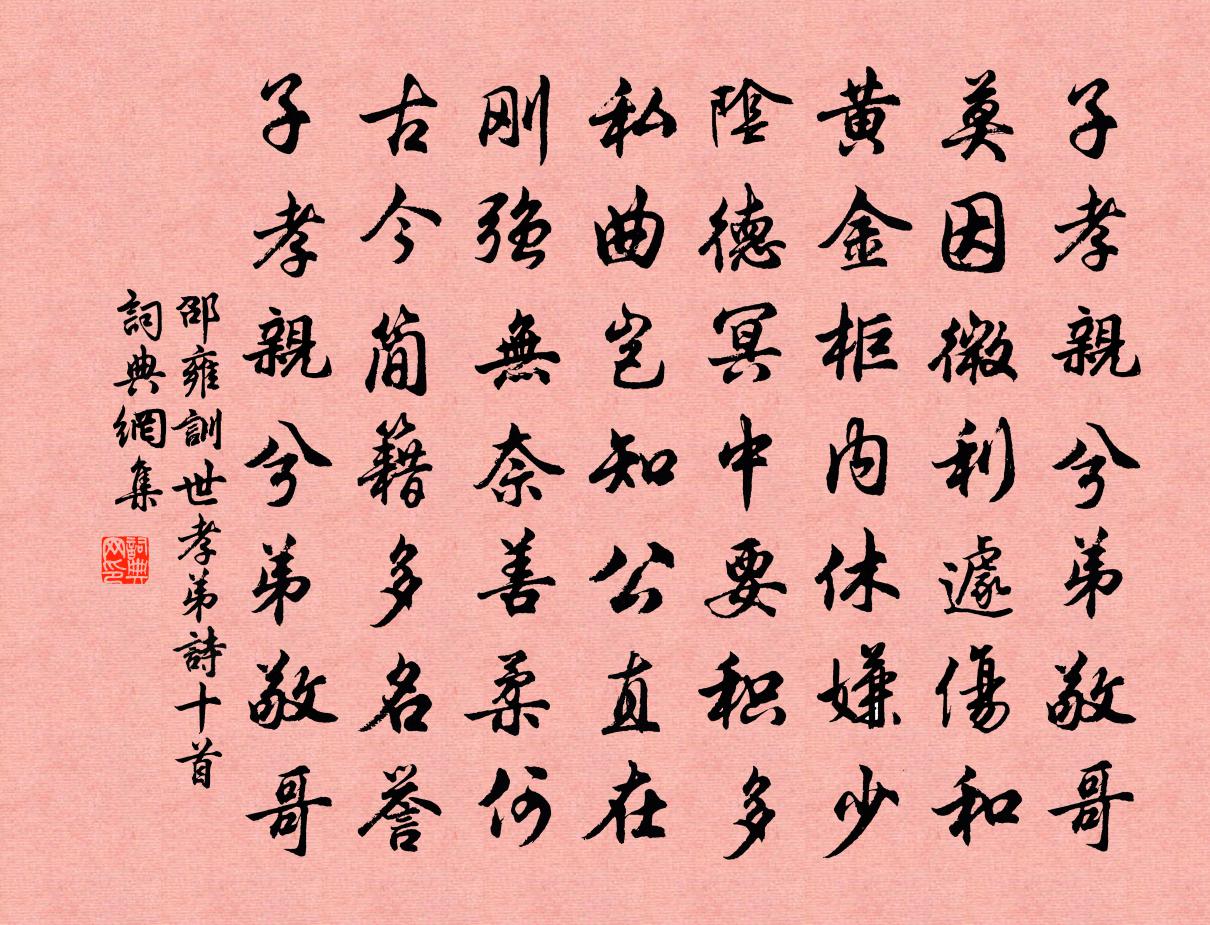 子孝親兮弟敬哥
莫因微利遽傷和
黄金柜内休嫌少
陰德冥中要积多
私曲岂知公直在
刚強無奈善柔何
古今简籍多名誉
子孝親兮弟敬哥
邵雍訓世孝弟詩十首
詞典網集
詞典网印